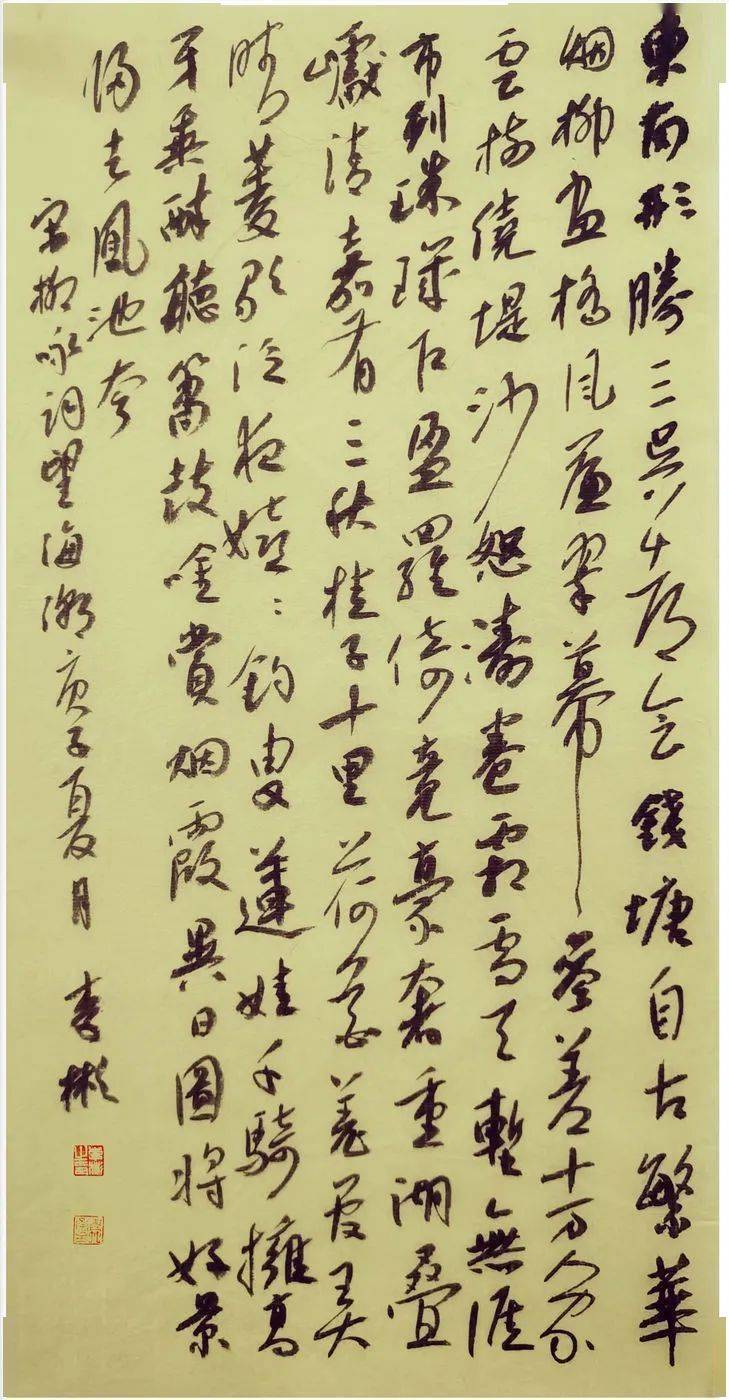 東南形勝三吳都會錢塘自古繁華
烟柳畫橋風簾翠幕參差十万人家
雲樹繞堤沙怒濤卷霜雪天塹無涯
市列珠璣户盈羅綺競豪奢重湖疊
巘清嘉有三秋桂子十里荷花羌管弄
晴菱歌泛夜嬉〻釣叟蓮娃千騎擁高
牙乘醉聽簫鼓吟賞烟霞異日圖將好景
歸去鳳池夸
宋柳永詞望海潮庚子夏月 李彬